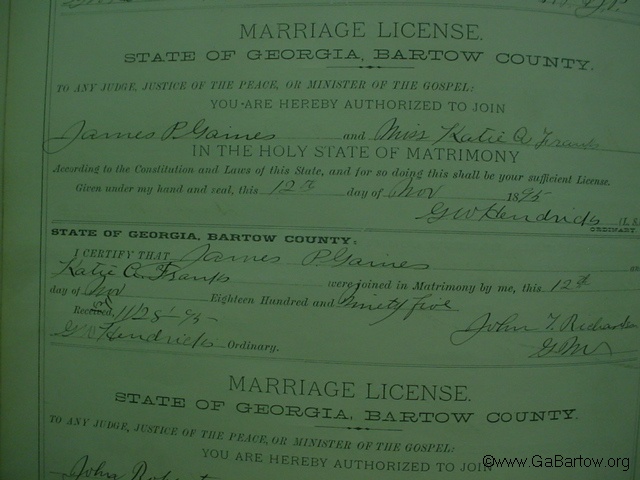 MARRIAGE LICENSE.
STATE OF GEORGIA, BARTOW COUNTY.
TO ANY JUDGE, JUSTICE OF THE PEACE, OR MINISTER OF THE GOSPEL:
YOU ARE HEREBY AUTHORIZED TO JOIN
James P. Gaines and Miss Katie A. Franks
IN THE HOLY STATE OF MATRIMONY
According to the Constitution and Laws of this State, and for so doing this shall be your sufficient License.
Given under my hand and seal, this 12th day of Nov 1895
GW Hendricks (L. S.
ORDINARY.
STATE OF GEORGIA, BARTOW COUNTY:
I CERTIFY THAT James P Gaines
Katie A. Franks were joined in Matrimony by me, this 12th
day of Nov Eighteen Hundred and ninety five
Received, John T.
GW Hendricks Ordinary.
MARRIAGE LICENSE.
STATE OF GEORGIA, BARTOW COUNTY.
TO ANY JUDGE, JUSTICE OF THE PEACE, OR MINISTER OF THE GOSPEL:
YOU ARE HEREBY AUTHORIZED TO JOIN
John
©www.GaBartow.org